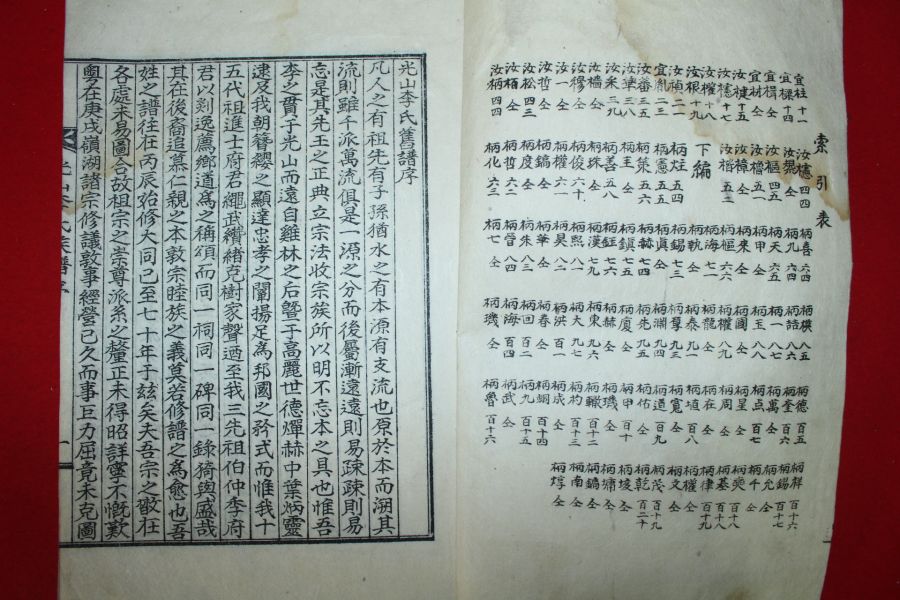 索引表
宜柱 十一
宜樑 十四
宜楫 仝
宜材 仝
汝楗 十五
汝櫶 十七
汝權 十八
汝根 十九
汝楨 二一
宜胤 二三
汝蕃 三一
汝瑋 三八
汝采 三九
汝檣 仝
汝修 四十
汝一 仝
汝哲 仝
汝松 四三
汝栢 仝
汝柄 四四
汝櫶 四四
汝焜 仝
汝樞 四五
汝櫓 五一
汝樟 仝
汝楷 五三
下編
柄炷 五四
柄憲 五五
柄策 五六
柄圭 仝
柄善 五八
柄銖 仝
柄俊 六十
柄權 六一
柄鎬 仝
柄度 仝
柄哲 六二
柄化 六三
柄喜 六四
柄九 六四
柄天 六五
柄甲 仝
柄來 仝
柄樞 六六
柄海 七一
柄執 仝
柄錫 七三
柄眞 仝
柄赫 七四
柄鎭 七五
柄鈺 仝
柄漢 七九
柄熙 八一
柄昊 八二
柄華 仝
柄朱 八三
柄晉 八四
柄七 仝
柄模 八五
柄喆 八六
柄一 八七
柄玉 八八
柄國 仝
柄權 八九
柄龍 仝
柄泰 九一
柄鐸 九三
柄淵 九四
柄先 九五
柄廈 仝
柄赫 仝
柄東 九六
柄大 九七
柄洪 百一
柄春 仝
柄回 百二
柄海 百四
柄璣 仝
柄德 百五
柄奎 百六
柄萬 仝
柄点 百七
柄星 仝
柄周 仝
柄在 仝
柄埴 百八
柄寬 仝
柄道 百九
柄佑 仝
柄甲 百十
柄璣 仝
柄轍 百十二
柄杓 百十三
柄成 仝
柄綱 百十四
柄九 百十五
柄武 仝
柄魯 百十六
柄祥 百十六
柄錫 百十七
柄允 仝
柄千 仝
柄奭 百十八
柄基 仝
柄律 百十九
柄權 仝
柄文 仝
柄茂 百十九
柄乾 百二十
柄堎 仝
柄墉 仝
柄鎬 仝
柄南 仝
柄焞 仝
光山李氏舊譜序
凡人之有祖先有子孫猶水之有本源有支流也原於本而溯其
流則雖千派萬流俱是一源之分而後屬漸遠遠則易疎疎則易
忘是其先王之正典立宗法收宗族所以明不忘本之具也惟吾
李之貫于光山而遠自雞林之后暨于高麗世德燀赫中葉炳靈
逮及我朝簪纓之顯達忠孝之闡揚足爲邦國之矜式而惟我十
五代祖進士府君繩武纘緖克樹家聲迺至我三先祖伯仲李府
君以剡逸薦鄕道爲之稱頌而同一祠同一碑同一錄猗歟盛哉
其在後裔追慕仁親之本敦宗睦族之義莫若修譜之爲愈也吾
姓之譜往在丙辰始修大同已至七十年于玆矣夫吾宗之散在
各處未易圖合故祖宗之崇尊派系之釐正未得昭詳寧不慨歎
奧在庚戌嶺湖諸宗修議敦事經營已久而事巨力屈竟未克圖
光山李氏族譜序
一